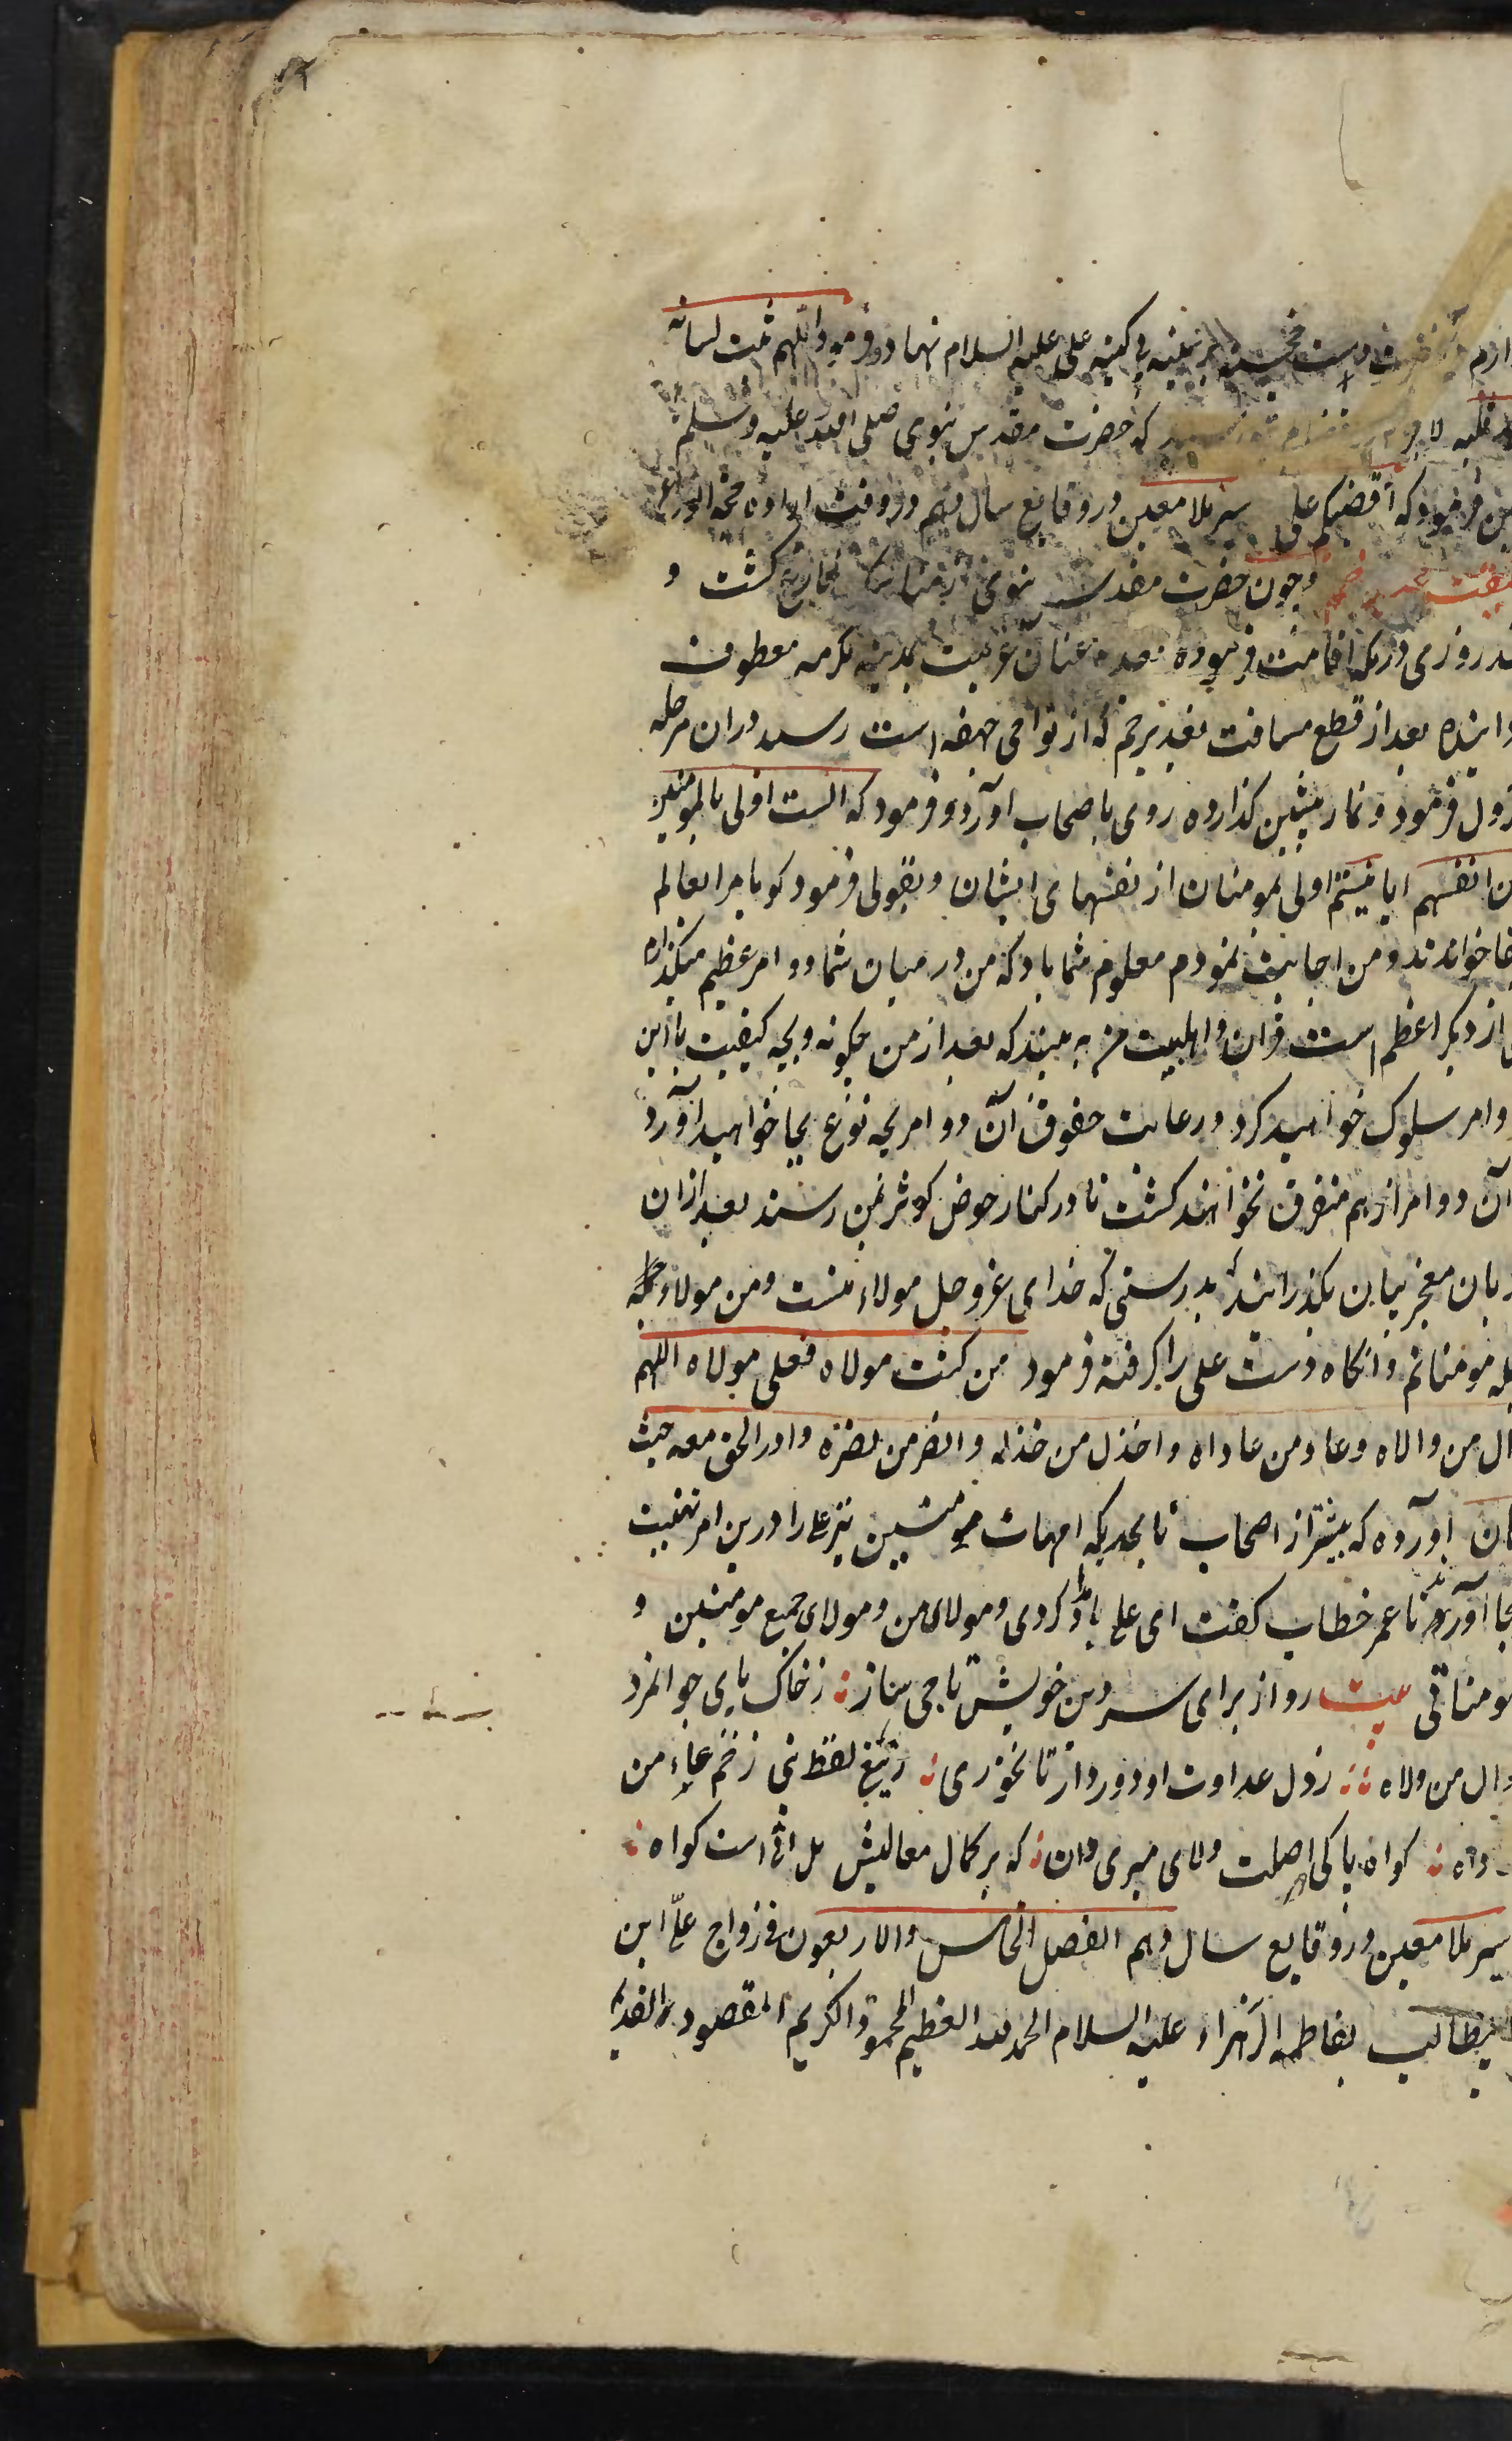 دست خجسته بر سینه بی کینه علی علیه السلام نهاد و فرمود اللهم ثبت لسانه
قلبه لا جرم که حضرت مقدس نبوی صلی الله علیه و سلم
فرمود که اقضیکم علی سیر ملا معین در وقایع سال دهم در وقت
و چون حضرت مقدس نبوی از مناسک فارغ کشت و
روزی در مکه اقامت فرموده عنان عزیمت بمدینه مکرمه معطوف
بعد از قطع مسافت بغدیر خم که از نواحی جحفه است رسید در ان مرحله
نزول فرمود و نماز پیشین کذارده روی باصحاب آورد و فرمود که الست اولی بالمومنین
من انفسهم ایا نیستم اولی بمومنان از نفسهای ایشان و بقولی فرمود کویا مرا بعالم
خواندند و من اجابت نمودم معلوم شما باد که من در میان شما دو امر عظیم میکذارم
از دیکر اعظم است قران و اهلبیت من به بینید که بعد از من چکونه و بچه کیفیت با این
دو امر سلوک خواهید کرد و رعایت حقوق آن دو امر بچه نوع بجا خواهید آورد
آن دو امر از هم متفرق نخواهند کشت تا در کنار حوض کوثر بمن رسند بعد ازان
زبان معجز بیان بکذرانید که بدرستی که خدای عز و جل مولاء منست و من مولاء جمله
مومنانم و انکاه دست علی را کرفته فرمود من کنت مولاه فعلی مولاه اللهم
وال من والاه و عاد من عاداه و اخذل من خذله و انصر من نصره و ادر الحق معه حیث
کان اورده که بیشتر از اصحاب تا بحدیکه امهات مومنین نیز علی را درین امر تهنیت
بجا آوردند تا عمر خطاب کفت ای علی بامداد کردی و مولای من و مولای جمیع مومنین و
مومناتی بیت رو از برای سر دین خویش تاجی ساز ز خاک پای جوانمرد
وال من ولاه ز دل عداوت او دور دار تا نخوری ز تیغ لفظ نبی زخم عاد من
عاداه کواه پاکی اصلت ولای میری دان که بر کمال معالیش هل اتی است کواه
سیر ملا معین در وقایع سال دهم الفصل الخامس والاربعون فی زواج علی ابن
ابیطالب بفاطمه الزهراء علیه السلام الحمد لله العظیم المحمود الکریم المقصود